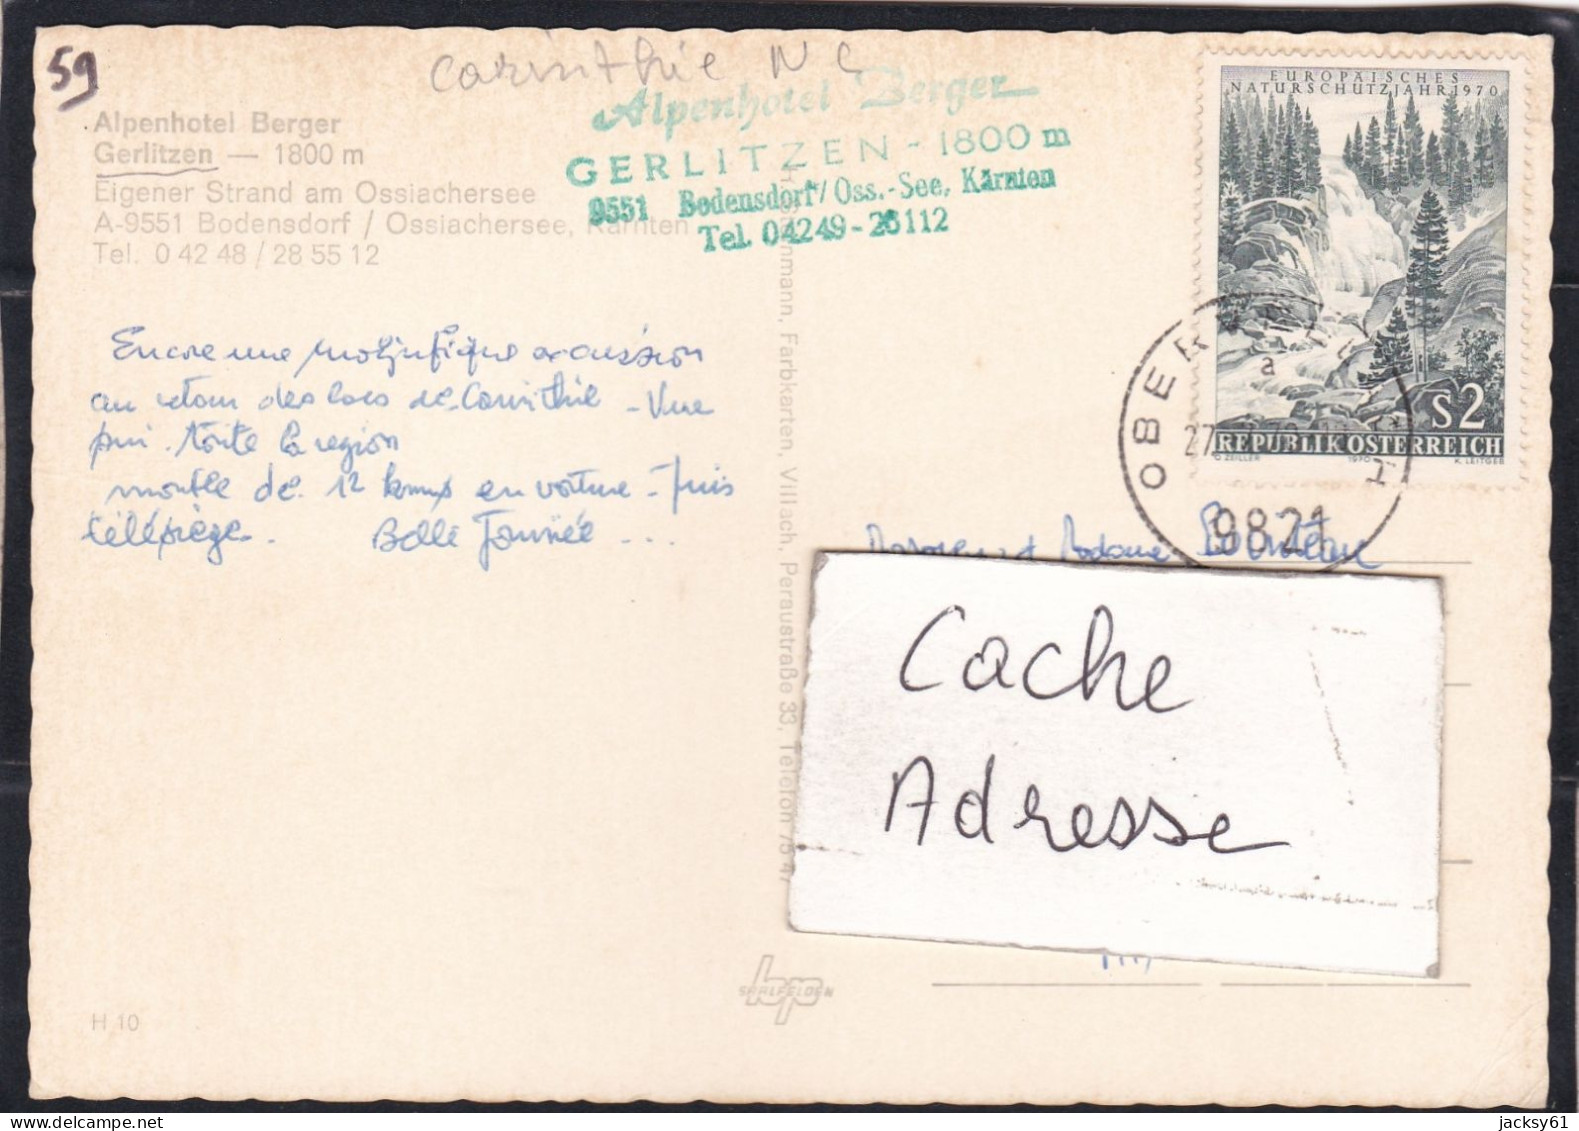 59
Carinthie N C
Alpenhotel Berger
Gerlitzen — 1800 m
Eigener Strand am Ossiachersee
A-9551 Bodensdorf / Ossiachersee, Kärnten
Tel. 0 42 48 / 28 55 12
Alpenhotel Berger
GERLITZEN - 1800 m
9551 Bodensdorf/Oss.-See, Kärnten
Tel. 04249-28112
EUROPÄISCHES
NATURSCHUTZJAHR 1970
S2
REPUBLIK ÖSTERREICH
O. ZEILLER 1970 K. LEITGEB
OBER
a
27
9821
Encore une magnifique excursion
au retour des lacs de Carinthie - Vue
sur toute la région
montée de 12 kms en voiture - puis
télésiège. Belle Journée ...
Farbkarten, Villach, Peraustraße 33, Telefon
Madame
Cache
Adresse
hp
SAALFELDEN
H 10
jacksy61